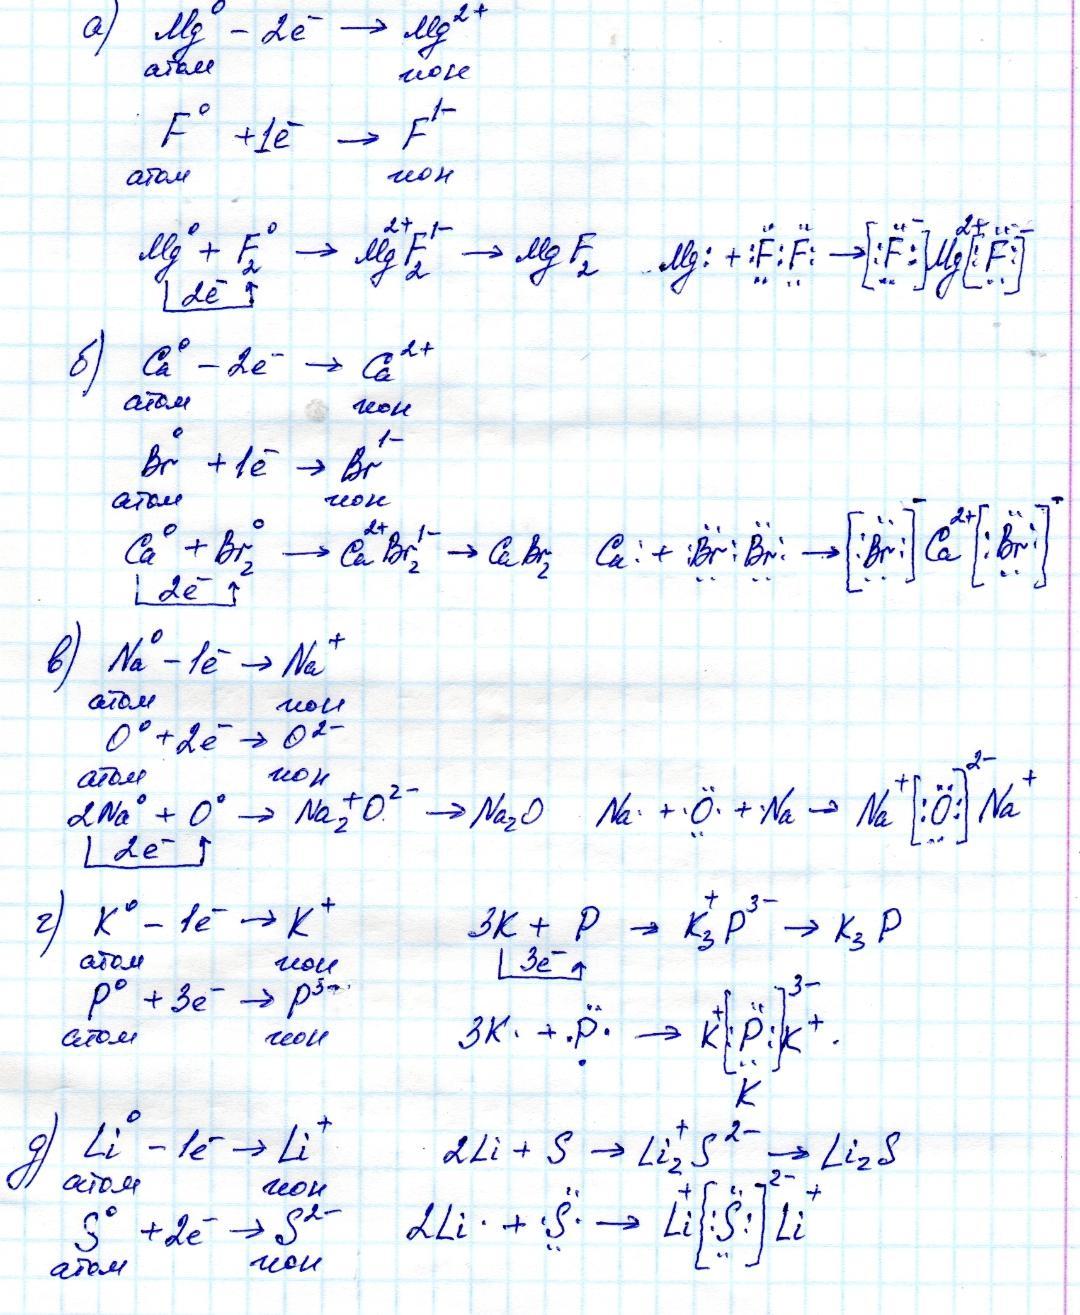 а) Mg⁰ – 2e⁻ → Mg²⁺
атом ион
F⁰ +1e⁻ → F¹⁻
атом ион
Mg⁰ + F₂⁰ → Mg²⁺F₂¹⁻ → MgF₂ Mg: + :F̤̈:F̤̈: → [:F̤̈:]⁻Mg²⁺[:F̤̈:]⁻
2e⁻
б) Ca⁰ – 2e⁻ → Ca²⁺
атом ион
Br⁰ + 1e⁻ → Br¹⁻
атом ион
Ca⁰ + Br₂⁰ → Ca²⁺Br₂¹⁻ → CaBr₂ Ca: + :B̤̈r:B̤̈r: → [:B̤̈r:]⁻ Ca²⁺ [:B̤̈r:]⁺
2e⁻
в) Na⁰ – 1e⁻ → Na⁺
атом ион
O⁰ + 2e⁻ → O²⁻
атом ион
2Na⁰ + O⁰ → Na₂⁺O²⁻ → Na₂O Na· + ·Ö̤· + ·Na → Na⁺[:Ö̤:]²⁻Na⁺
2e⁻
г) K⁰ – 1e⁻ → K⁺ 3K + P → K₃⁺P³⁻ → K₃P
атом ион 3e⁻
P⁰ + 3e⁻ → P³⁻
атом ион 3K· + ·P̣̈· → K⁺[:P̤̈:]³⁻K⁺.
K
д) Li⁰ – 1e⁻ → Li⁺ 2Li + S → Li₂⁺S²⁻ → Li₂S
атом ион
S⁰ + 2e⁻ → S²⁻ 2Li· + ·S̤̈· → Li⁺[:S̤̈:]²⁻Li⁺
атом ион